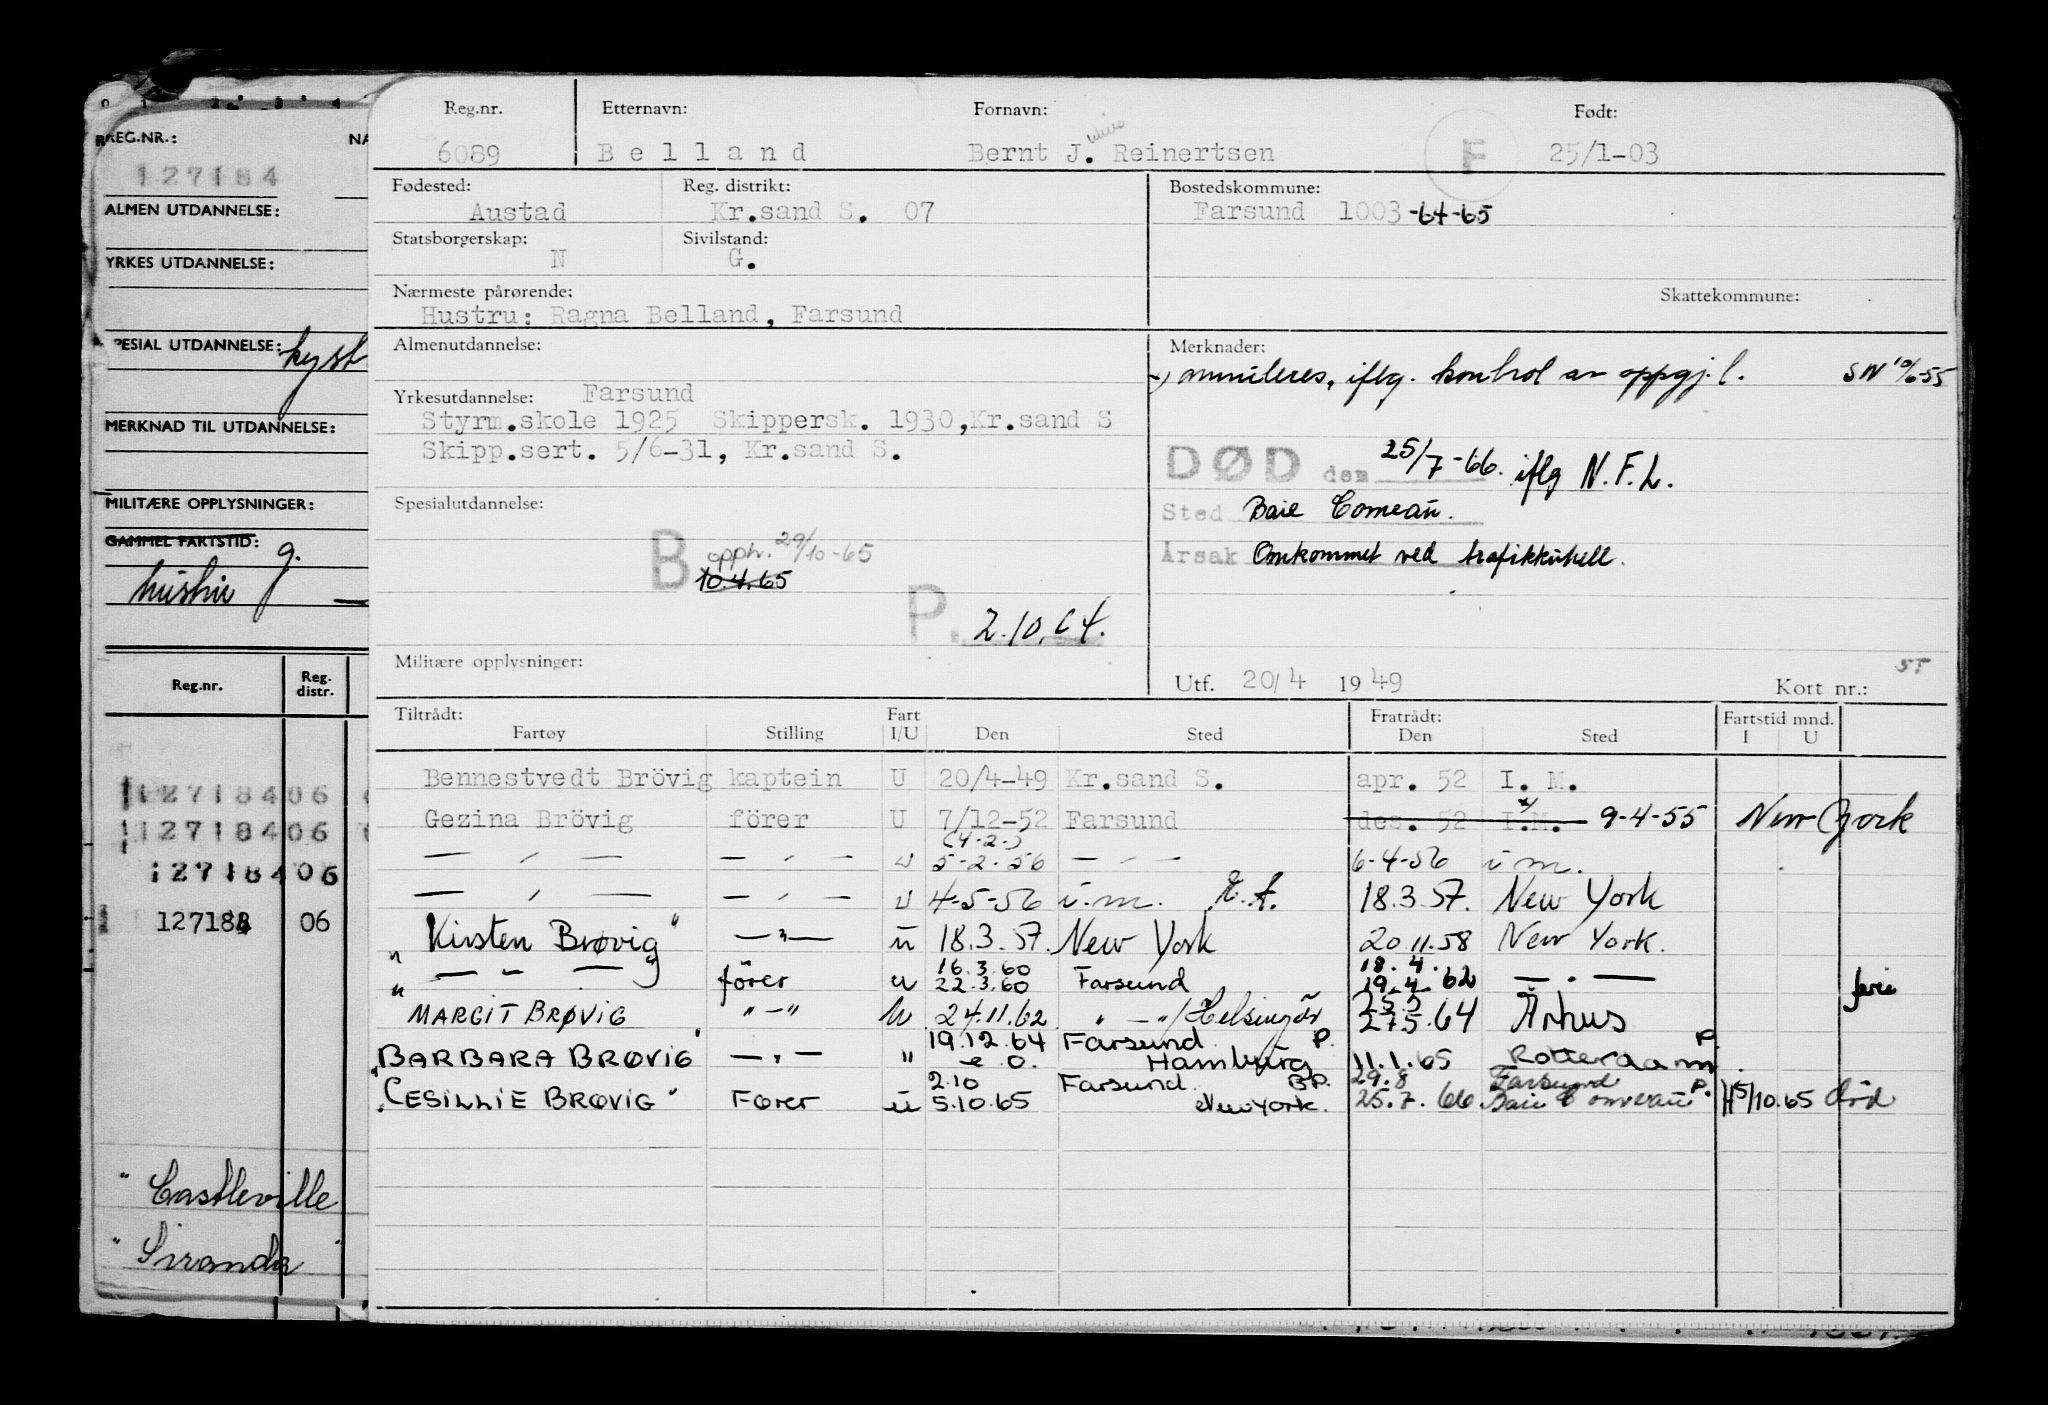 0 1 2 3 4
REG.NR.: NA
127184
ALMEN UTDANNELSE:
YRKES UTDANNELSE:
PESIAL UTDANNELSE: kyst
MERKNAD TIL UTDANNELSE:
MILITÆRE OPPLYSNINGER:
GAMMEL FARTSTID: g.
hustru
Reg.nr. Reg. distr.
127184 06
127184 06
127184 06
127184 06
"Castleville
"Siranda"
Reg.nr. Etternavn: Fornavn: Født:
6089 Belland Bernt J. Reinertsen F 25/1-03
Fødested: Reg. distrikt: Bostedskommune:
Austad Kr.sand S. 07 Farsund 1003-64-65
Statsborgerskap: Sivilstand:
N G.
Nærmeste pårørende: Skattekommune:
Hustru: Ragna Belland, Farsund
Almenutdannelse: Merknader:
x) annuleres, iflg. kontrol av oppgj. l. SN 10/6-55
Yrkesutdannelse: Farsund
Styrm.skole 1925 Skippersk. 1930, Kr.sand S
Skipp.sert. 5/6-31, Kr.sand S.
DØD den 25/7-66. iflg N.F.L.
Spesialutdannelse:
Sted Baie Comeau.
B opph. 29/10-65
10.4.65
Årsak Omkommet ved trafikkuhell.
P. 2.10.64.
Militære opplysninger:
Utf. 20/4 1949 Kort nr.:
ST
Tiltrådt: Fart Fratrådt: Fartstid mnd.
Fartøy Stilling I/U Den Sted Den Sted I U
Bennestvedt Brövig kaptein U 20/4-49 Kr.sand S. apr. 52 I. M.
Gezina Brövig förer U 7/12-52 Farsund des. 52 I.M. x) 9-4-55 New York
— , — — , — u (4-2-) 5-2-56 — , — 6-4-56 i m.
— , — — , — u 4-5-56 i.m. E.A. 18.3.57. New York
"Kirsten Brøvig" — " — u 18.3.57. New York 20.11.58 New York.
" — " — " förer u 16.3.60 22.3.60 Farsund 18.4. 19.4.62 — . — ferie
MARGIT BRØVIG " — " u 24.11.62 " — "/Helsingör 25.5 27.5.64 Århus
"BARBARA BRØVIG" — , — " 19.12.64 Farsund P. Hamburg 11.1.65 Rotterdam P.
"CESILLIE BRØVIG" Fører u 2.10 5.10.65 Farsund BP. New York. 29.8 25.7.66 Farsund P. Baie Comeau H5/10.65 død